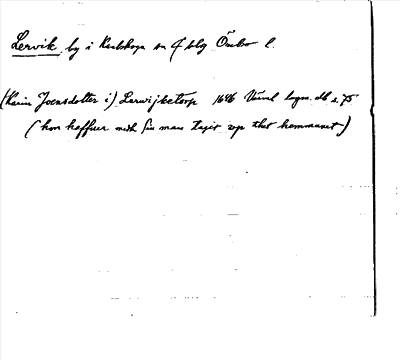 Lervik by i Karlskoga sn o f blg Örebro l.
(Karin Joensdotter i) Larwijketorp 1646 Värml lagm. db s 75
(hon haffuer medh sin man tagit up thet hemmanet)